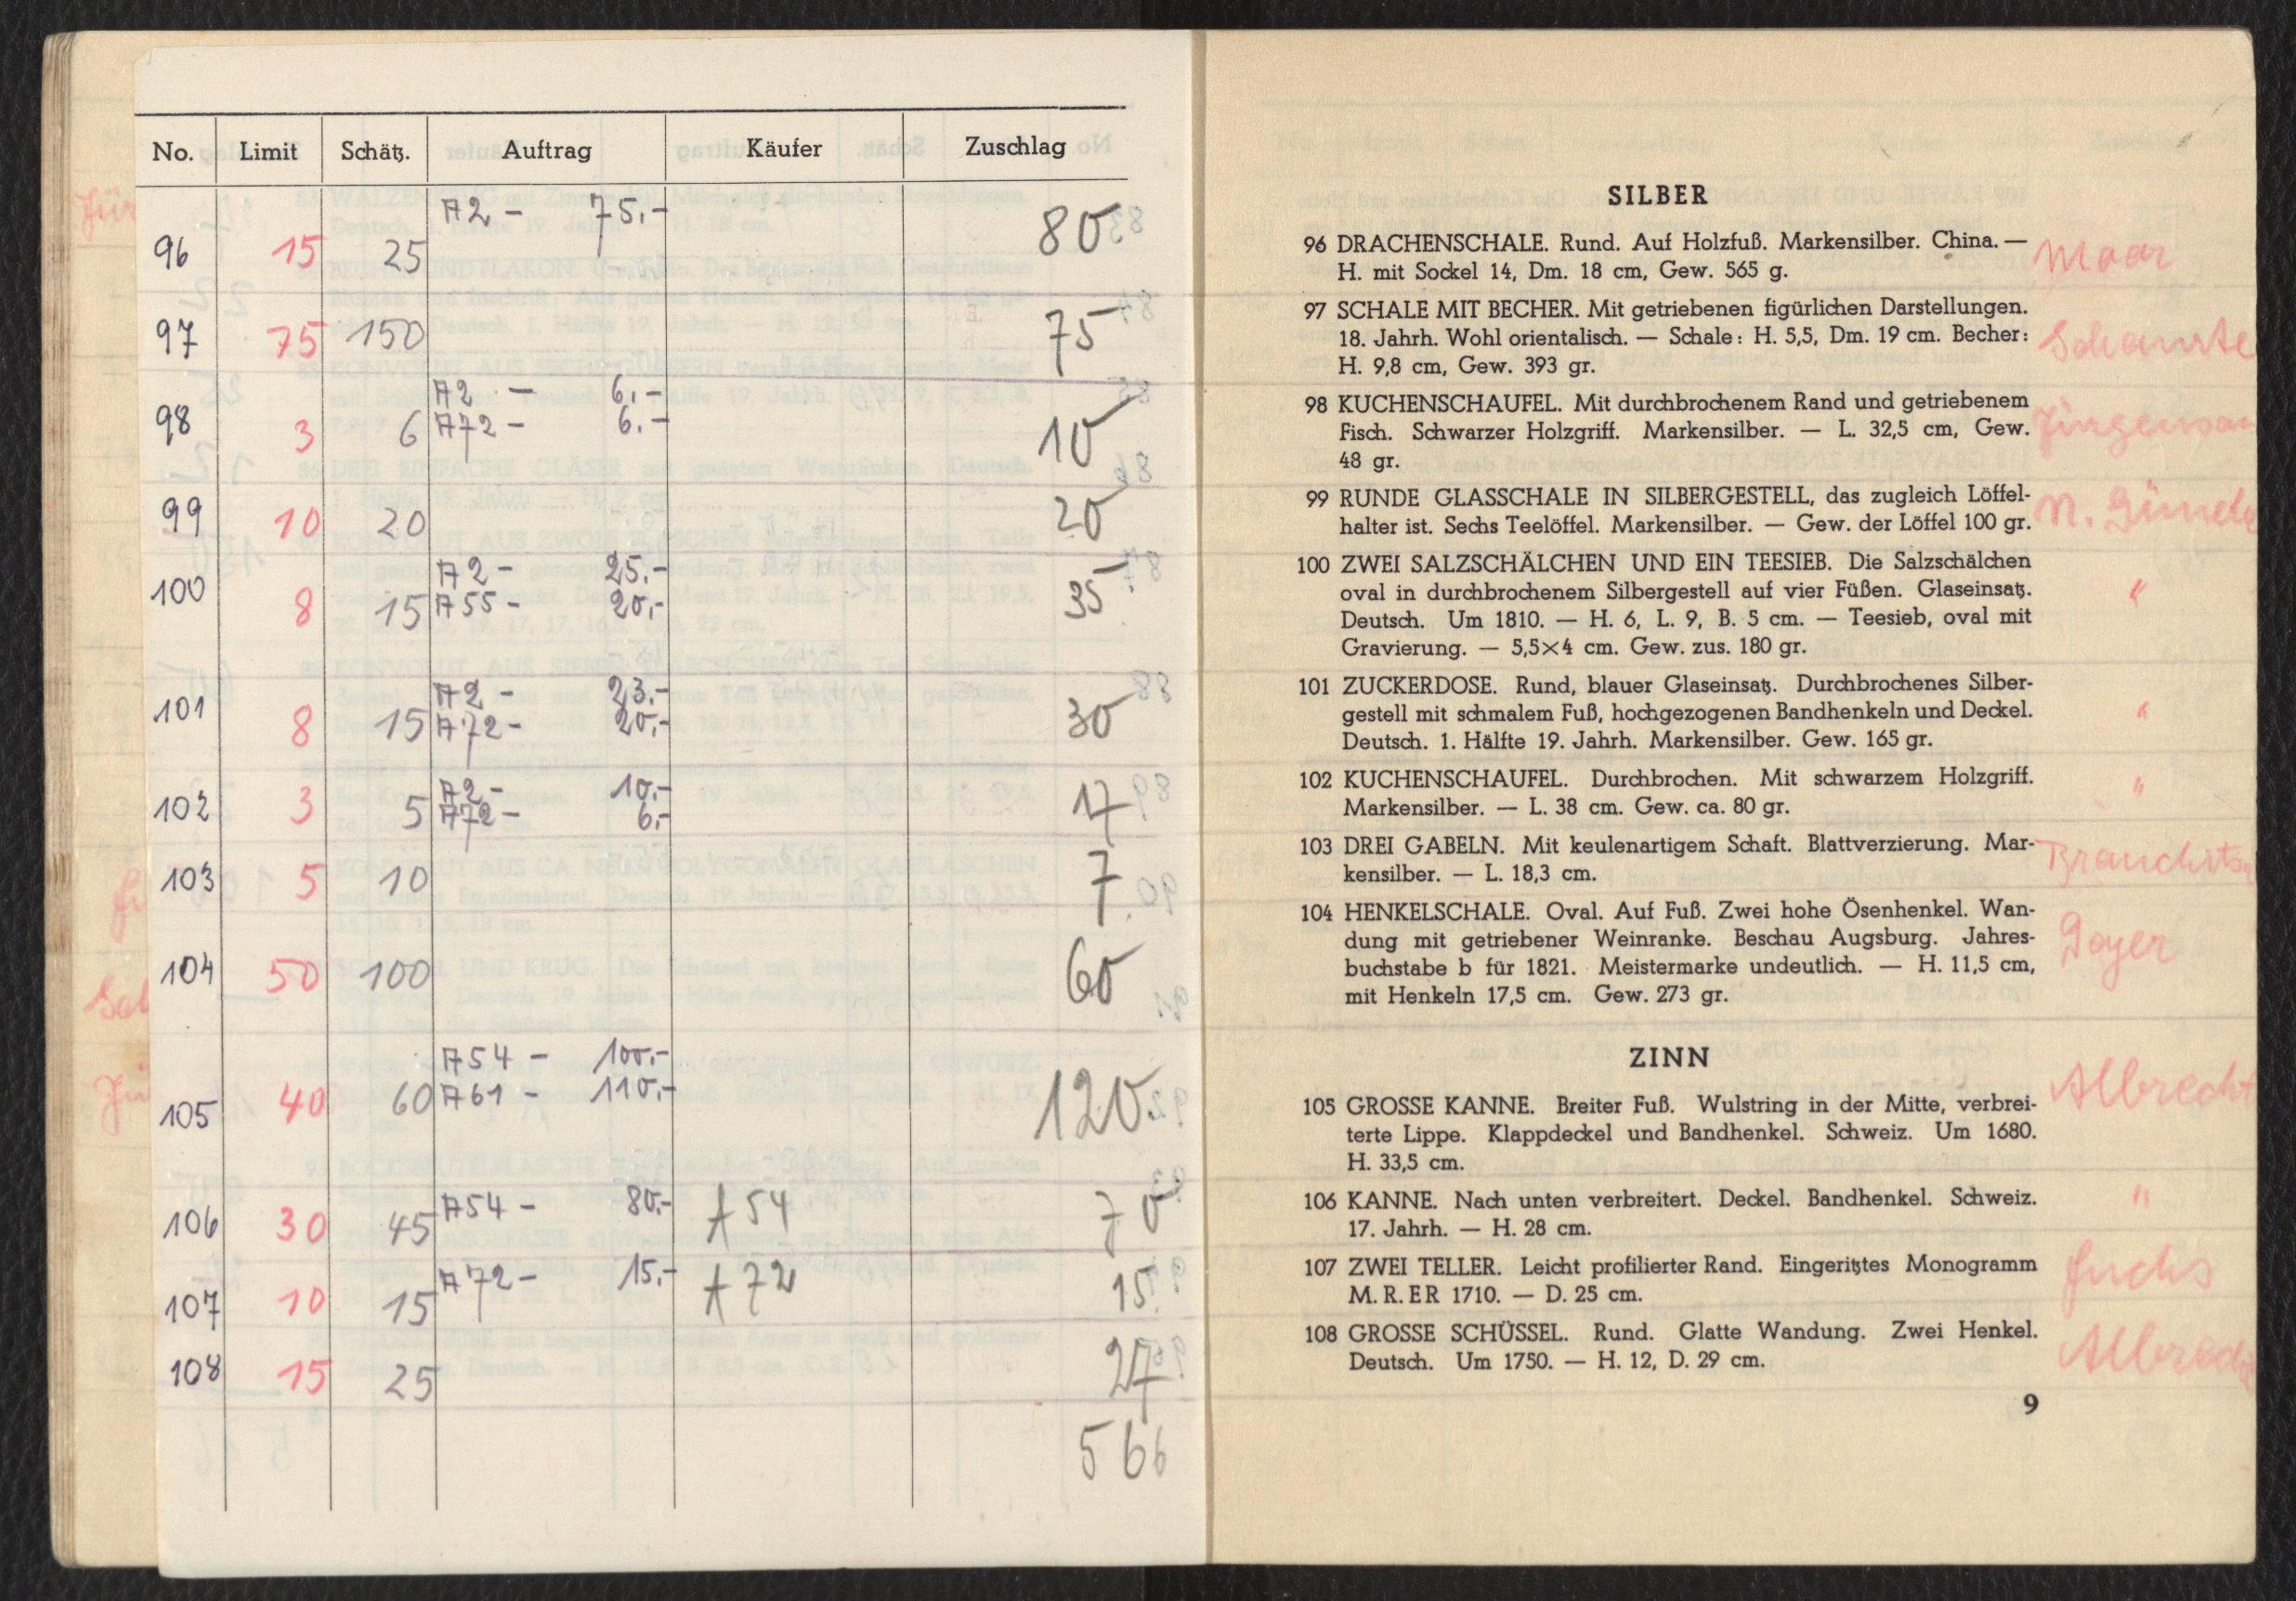 No. Limit Schätz. Auftrag Käufer Zuschlag
A2 - 75.-
96 15 25 80
97 75 150 75
A2 - 6.-
98 3 6 A72 - 6.- 10
99 10 20 20
A2 - 25.-
100 8 15 A55 - 20.- 35
A2 - 23.-
101 8 15 A72 - 20.- 30
A2 - 10.-
102 3 5 A72 - 6.- 17
103 5 10 7
104 50 100 60
A54 - 100.-
105 40 60 A61 - 110.- 120
106 30 45 A54 - 80.- A 54 70
107 10 15 A72 - 15.- A 72 15
108 15 25 27
566
SILBER
96 DRACHENSCHALE. Rund. Auf Holzfuß. Markensilber. China. —
H. mit Sockel 14, Dm. 18 cm, Gew. 565 g.
Maar
97 SCHALE MIT BECHER. Mit getriebenen figürlichen Darstellungen.
18. Jahrh. Wohl orientalisch. — Schale: H. 5,5, Dm. 19 cm. Becher:
H. 9,8 cm, Gew. 393 gr.
98 KUCHENSCHAUFEL. Mit durchbrochenem Rand und getriebenem
Fisch. Schwarzer Holzgriff. Markensilber. — L. 32,5 cm, Gew.
48 gr.
99 RUNDE GLASSCHALE IN SILBERGESTELL, das zugleich Löffel-
halter ist. Sechs Teelöffel. Markensilber. — Gew. der Löffel 100 gr.
100 ZWEI SALZSCHÄLCHEN UND EIN TEESIEB. Die Salzschälchen
oval in durchbrochenem Silbergestell auf vier Füßen. Glaseinsatz. "
Deutsch. Um 1810. — H. 6, L. 9, B. 5 cm. — Teesieb, oval mit
Gravierung. — 5,5×4 cm. Gew. zus. 180 gr.
101 ZUCKERDOSE. Rund, blauer Glaseinsatz. Durchbrochenes Silber-
gestell mit schmalem Fuß, hochgezogenen Bandhenkeln und Deckel. "
Deutsch. 1. Hälfte 19. Jahrh. Markensilber. Gew. 165 gr.
102 KUCHENSCHAUFEL. Durchbrochen. Mit schwarzem Holzgriff. "
Markensilber. — L. 38 cm. Gew. ca. 80 gr.
103 DREI GABELN. Mit keulenartigem Schaft. Blattverzierung. Mar-
kensilber. — L. 18,3 cm.
104 HENKELSCHALE. Oval. Auf Fuß. Zwei hohe Ösenhenkel. Wan-
dung mit getriebener Weinranke. Beschau Augsburg. Jahres-
buchstabe b für 1821. Meistermarke undeutlich. — H. 11,5 cm,
mit Henkeln 17,5 cm. Gew. 273 gr.
ZINN
Albrecht
105 GROSSE KANNE. Breiter Fuß. Wulstring in der Mitte, verbrei-
terte Lippe. Klappdeckel und Bandhenkel. Schweiz. Um 1680.
H. 33,5 cm.
106 KANNE. Nach unten verbreitert. Deckel. Bandhenkel. Schweiz. "
17. Jahrh. — H. 28 cm.
107 ZWEI TELLER. Leicht profilierter Rand. Eingeritztes Monogramm Fuchs
M. R. ER 1710. — D. 25 cm.
108 GROSSE SCHÜSSEL. Rund. Glatte Wandung. Zwei Henkel.
Deutsch. Um 1750. — H. 12, D. 29 cm. Albrecht
9